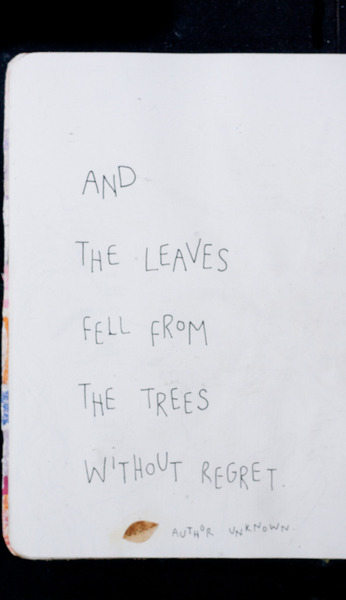 AND
THE LEAVES
FELL FROM
THE TREES
WITHOUT REGRET.
AUTHOR UNKNOWN.